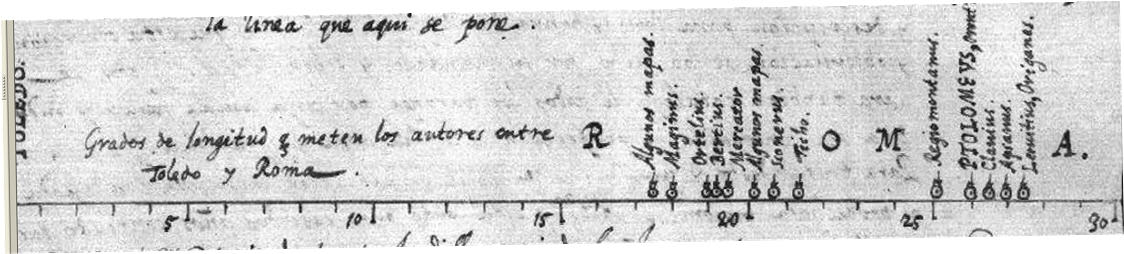 la linea que aqui se pone.
TOLEDO.
Grados de longitud q̃ meten los autores entre
Toledo y Roma.
R O M A.
Algunos mapas.
Maginus.
Ortelius.
Bertius.
Mercator
Algunos mapas.
Sonerus.
Ticho.
Regiomontanus.
PTOLOMEVS,
Clauius.
Apianus.
Origanes.
5 10 15 20 25 30